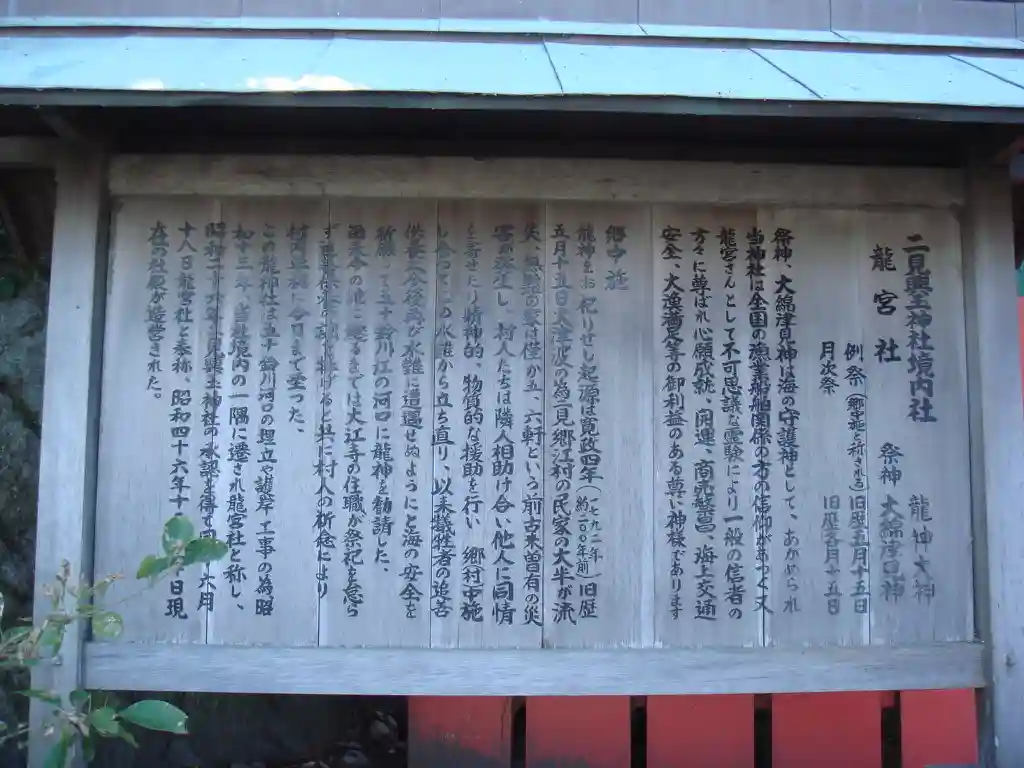 二見興玉神社境内社
龍宮社
祭神 龍神大神
大綿津見神
例祭(郷中施と称される)旧歴五月十五日
月次祭 旧歴各月十五日
祭神、大綿津見神は海の守護神として、あがめられ
当神社は全国の漁業船舶関係の方の信仰があつく又
龍宮さんとして不可思議な霊験により一般の信者の
方々に尊ばれ心願成就、開運、商売繁昌、海上交通
安全、大漁満足等の御利益のある尊い神様であります
郷中施
龍神をお祀りせし起源は寛政四年(一七九二年 約二〇〇年前)旧歴
五月十五日大津波の為二見郷江村の民家の大半が流
失、無難の家は僅か五、六軒という前古未曽有の災
害が発生し、村人たちは隣人相助け合い他人に同情
を寄せたり精神的、物質的な援助を行い「郷村中施
し合って」の水難から立ち直り、以来犠牲者の追善
供養又今後再び水難に遭遇せぬようにと海の安全を
祈願して五十鈴川江の河口に龍神を勧請した、
両宮今の地に遷るまでは大江寺の住職が祭祀を怠ら
ず
を捧げると共に村人の祈念により
村内
に今日まで至った、
この龍神社は五十鈴川河口の埋立や護岸工事の為昭
和十三年、当社境内の一隅に遷され龍宮社と称し、
昭和二十六年二見興玉神社の承認を得
六月
十八日龍宮社と奉称、昭和四十六年十
日現
在の社殿が造営された。